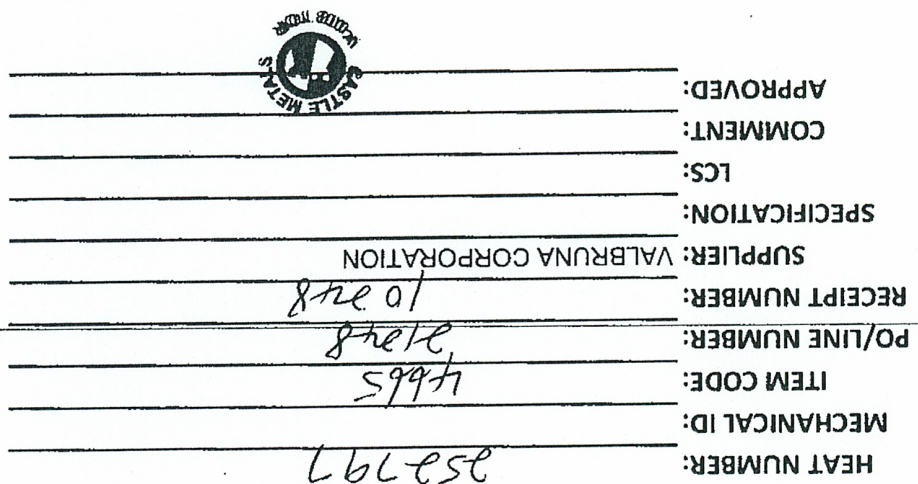 HEAT NUMBER: 252797
MECHANICAL ID:
ITEM CODE: 4665
PO/LINE NUMBER: 21248
RECEIPT NUMBER: 10 248
SUPPLIER: VALBRUNA CORPORATION
SPECIFICATION:
LCS:
COMMENT:
APPROVED:
CASTLE METALS